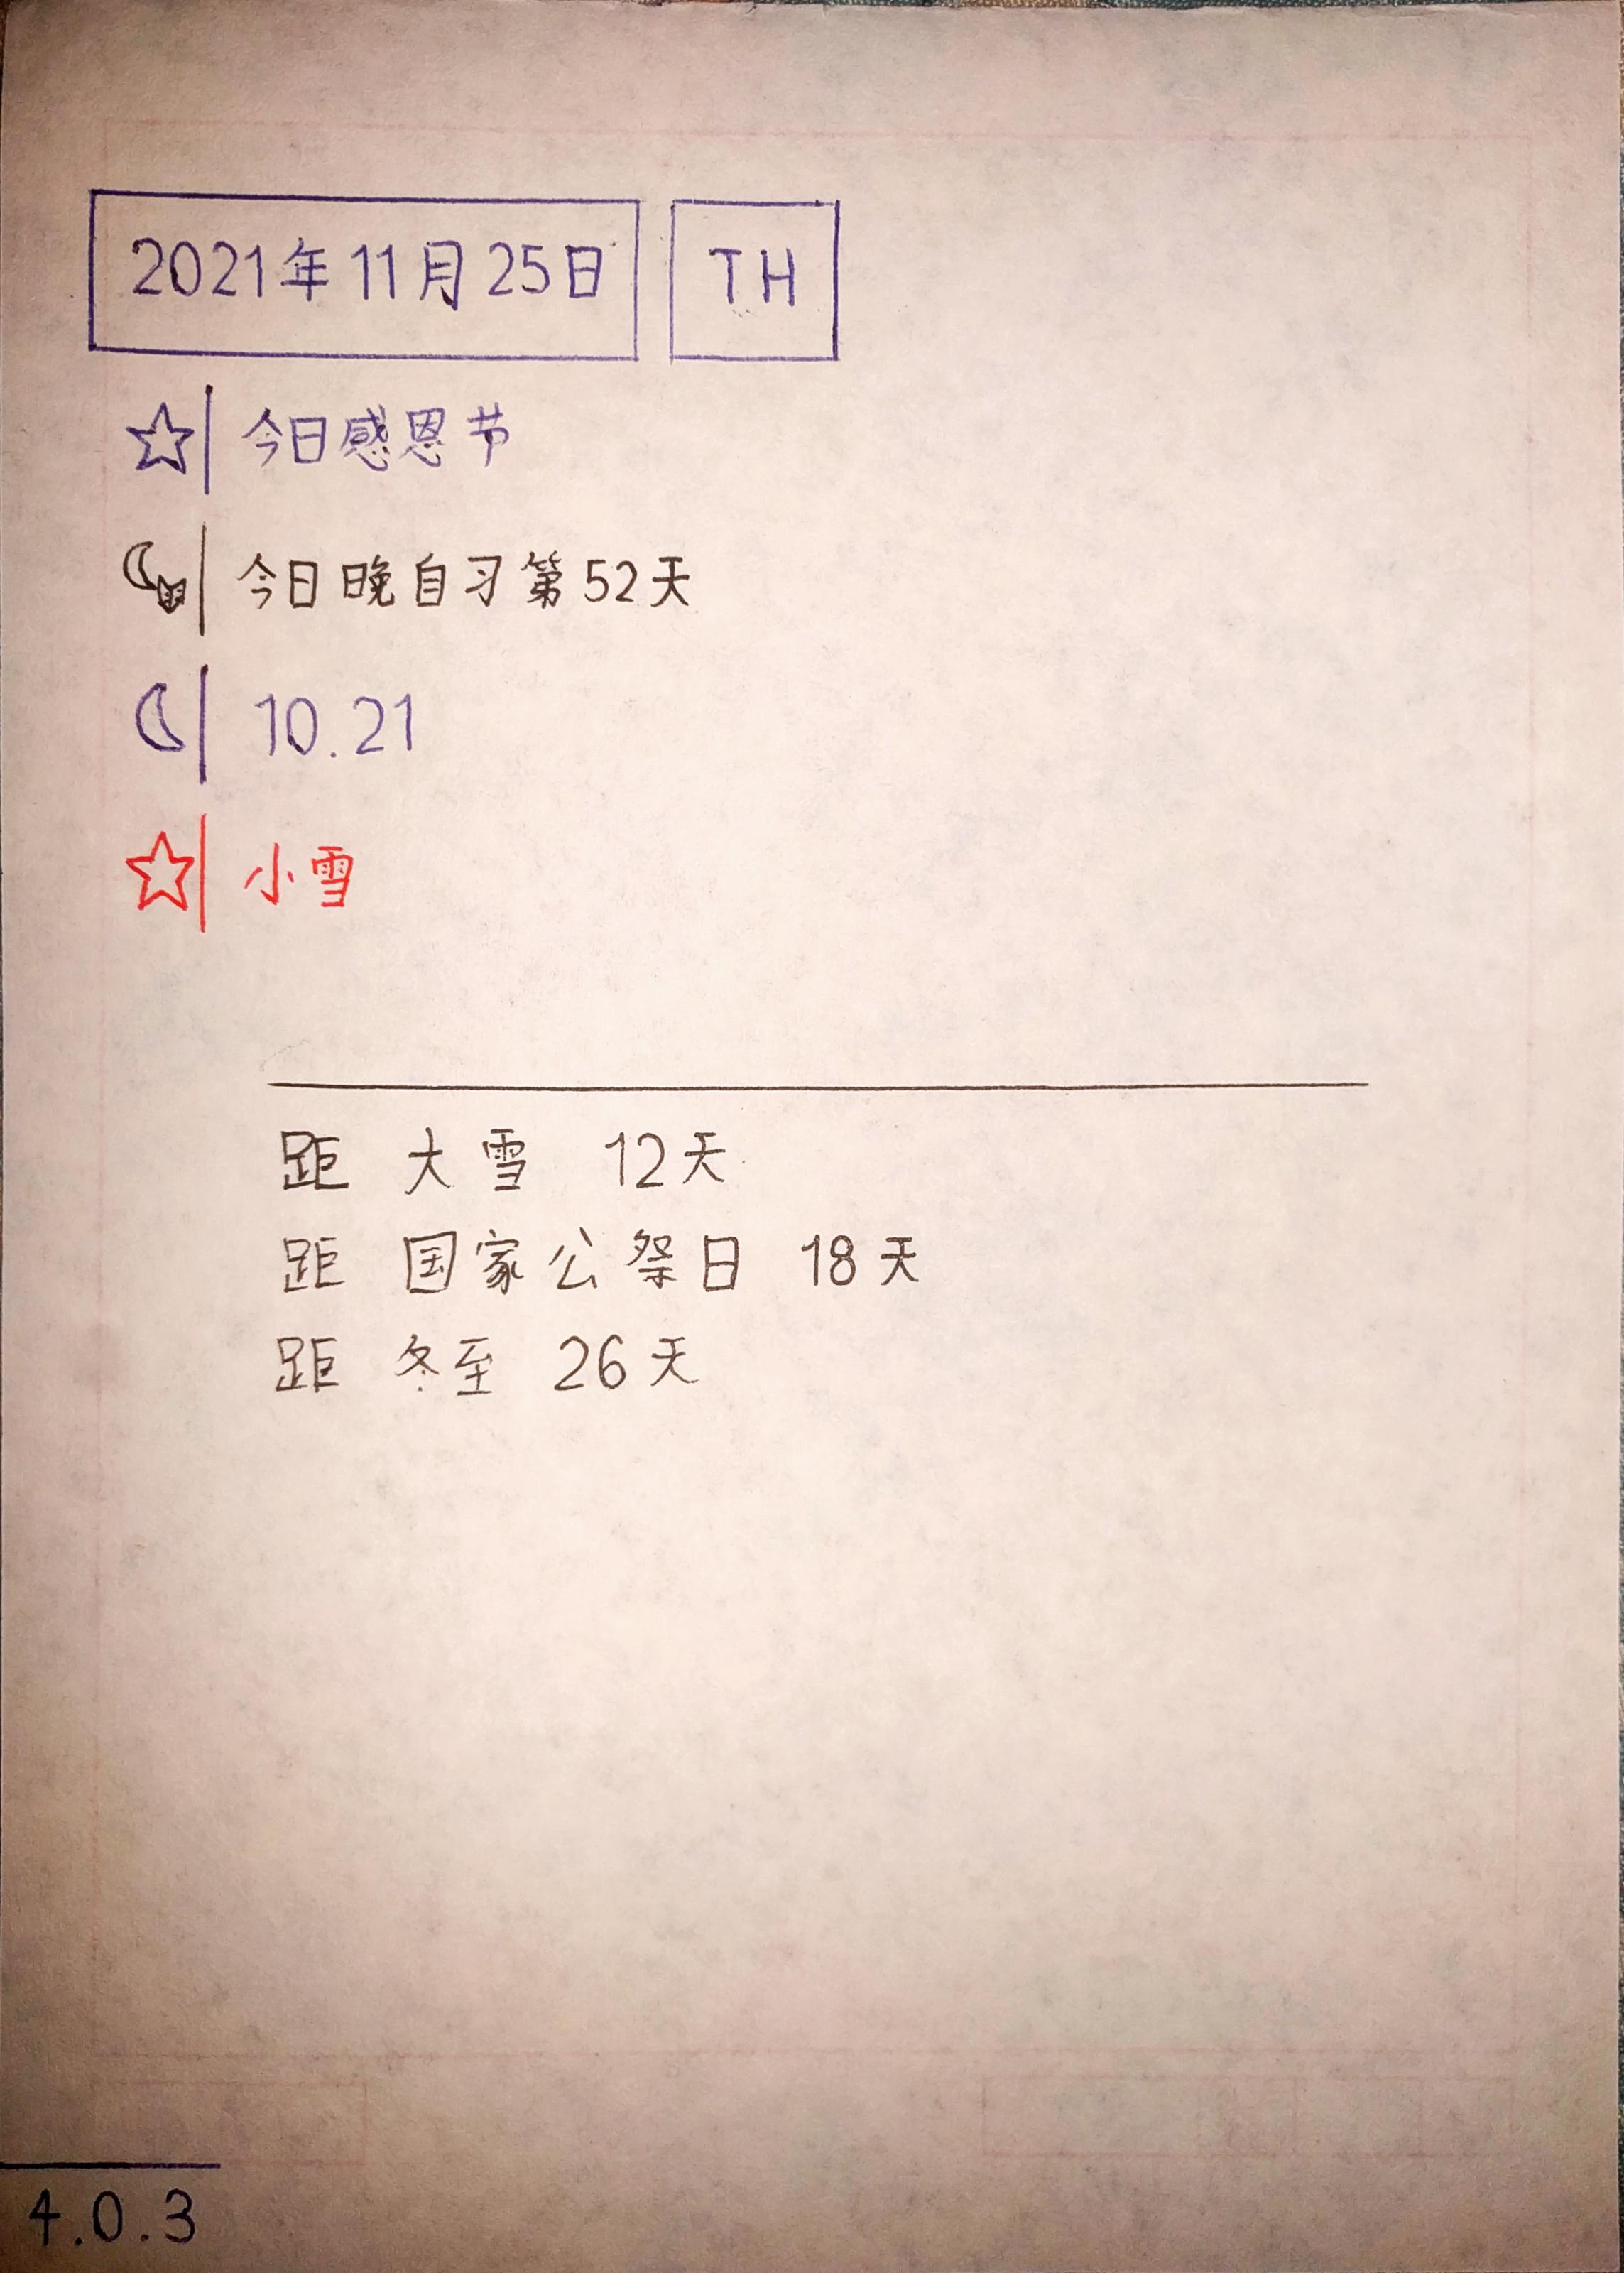 2021年11月25日 TH
今日感恩节
今日晚自习第52天
10.21
小雪
距 大雪 12天
距 国家公祭日 18天
距 冬至 26天
4.0.3